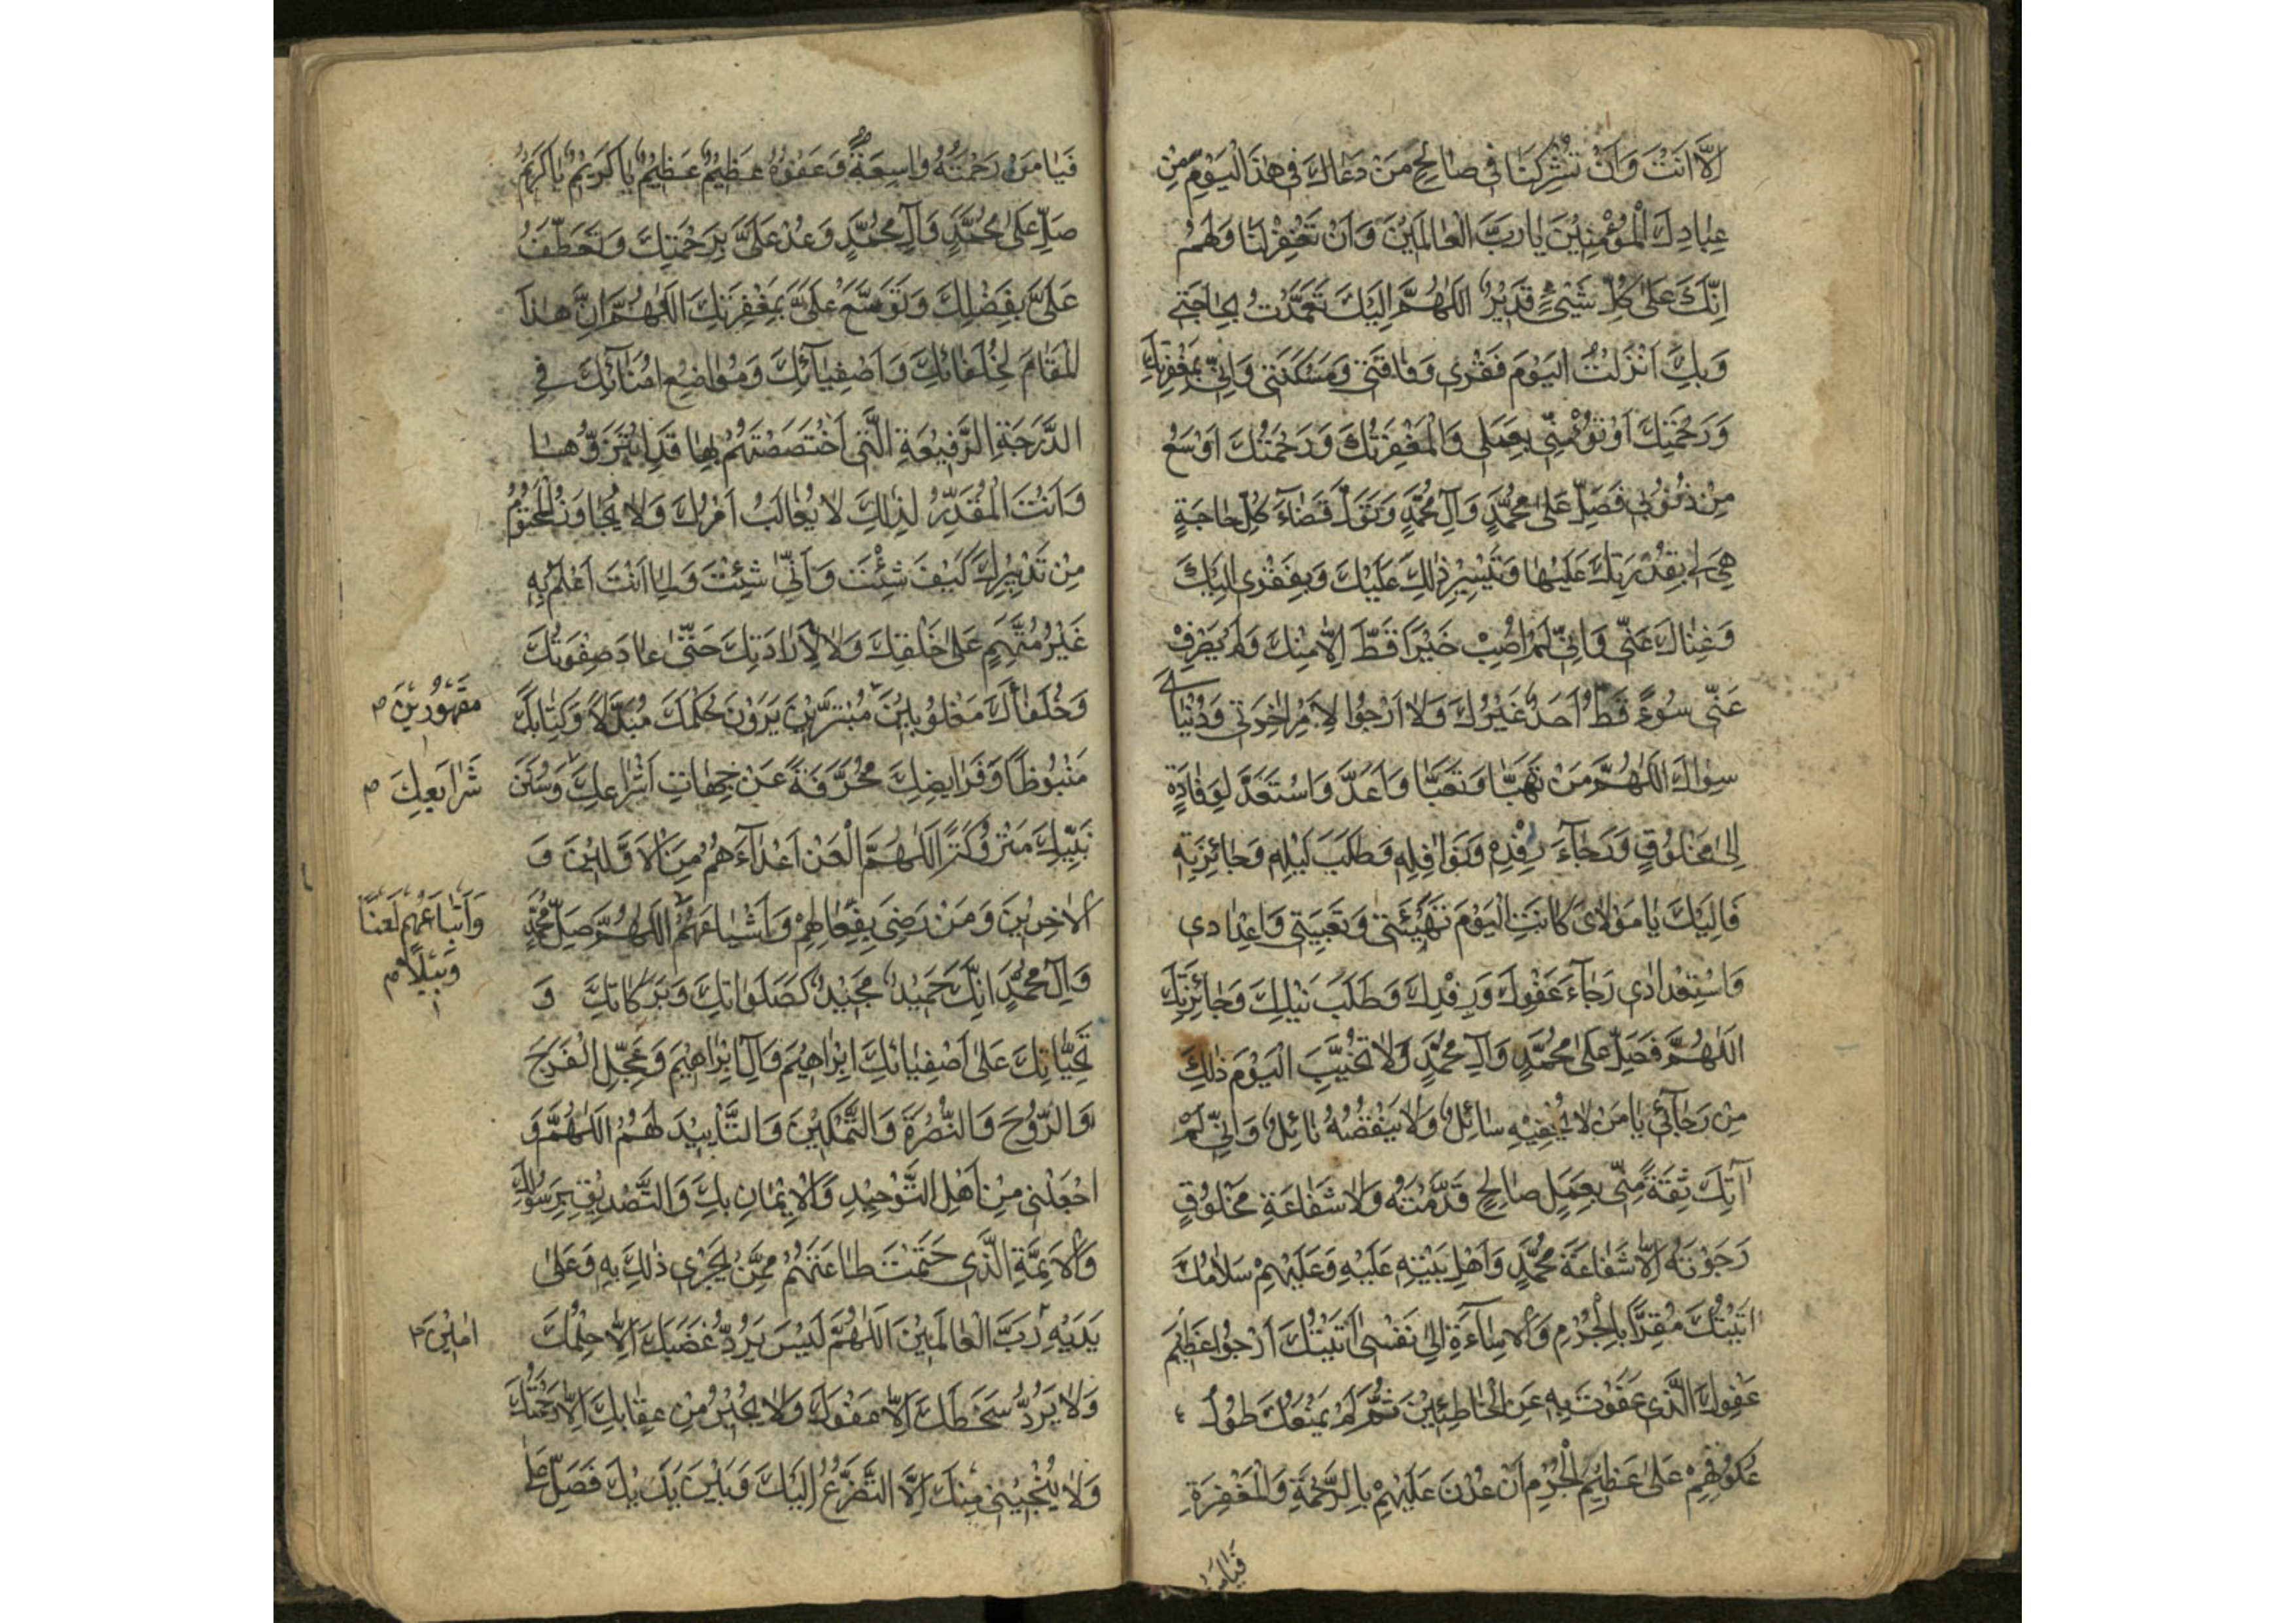 اِلَّا اَنْتَ وَاَنْ تُشْرِكَنَا فى صٰالِحِ مَنْ دَعٰاكَ فى هٰذَا الْيَوْمِ مِنْ
عِبٰادِكَ الْمُؤْمِنينَ يٰا رَبَّ الْعٰالَمينَ وَاَنْ تَغْفِرَ لَنٰا وَلَهُمْ
اِنَّكَ عَلىٰ كُلِّ شَيْئٍ قَديرٌ اَللّٰهُمَّ اِلَيْكَ تَعَمَّدْتُ بِحٰاجَتى
وَبِكَ اَنْزَلْتُ الْيَوْمَ فَقْرى وَفٰاقَتى وَمَسْكَنَتى وَاِنّى بِمَغْفِرَتِكَ
وَرَحْمَتِكَ اَوْثَقُ مِنّى بِعَمَلى وَالْمَغْفِرَتُكَ وَرَحْمَتُكَ اَوْسَعُ
مِنْ ذُنُوبى فَصَلِّ عَلىٰ مُحَمَّدٍ وَآلِ مُحَمَّدٍ وَتَوَلَّ قَضٰاءَ كُلِّ حٰاجَةٍ
هِىَ لى بِقُدْرَتِكَ عَلَيْهٰا وَتَيْسيرِ ذٰلِكَ عَلَيْكَ وَبِفَقْرى اِلَيْكَ
وَغِنٰاكَ عَنّى وَاِنّى لَمْ اُصِبْ خَيْرًا قَطُّ اِلّٰا مِنْكَ وَلَمْ يَصْرِفْ
عَنّى سُوءً قَطُّ اَحَدٌ غَيْرُكَ وَلٰا اَرْجُوا لِاَمْرِ اٰخِرَتى وَدُنْيٰاىَ
سِوٰاكَ اَللّٰهُمَّ مَنْ تَهَيَّا وَتَعَبَّا وَاَعَدَّ وَاسْتَعَدَّ لِوِفٰادَةٍ
اِلىٰ مَخْلُوقٍ وَرَجٰاءَ رِفْدِهِ وَنَوٰافِلِهِ وَطَلَبَ نَيْلِهِ وَجٰائِزَتِهِ
فَاِلَيْكَ يٰا مَوْلٰاىَ كٰانَتِ الْيَوْمَ تَهْيِئَتى وَتَعْبِيَتى وَاِعْدٰادى
وَاسْتِعْدٰادى رَجٰاءَ عَفْوِكَ وَرِفْدِكَ وَطَلَبَ نَيْلِكَ وَجٰائِزَتِكَ
اَللّٰهُمَّ فَصَلِّ عَلىٰ مُحَمَّدٍ وَآلِ مُحَمَّدٍ وَلٰا تُخَيِّبِ الْيَوْمَ ذٰلِكَ
مِنْ رَجٰآئى يٰا مَنْ لٰا يُحْفيهِ سٰائِلٌ وَلٰا يَنْقُصُهُ نٰائِلٌ وَاِنّى لَمْ
آتِكَ ثِقَةً مِنّى بِعَمَلٍ صٰالِحٍ قَدَّمْتُهُ وَلٰا شَفٰاعَةِ مَخْلُوقٍ
رَجَوْتُهُ اِلّٰا شَفٰاعَةَ مُحَمَّدٍ وَاَهْلِ بَيْتِهِ عَلَيْهِ وَعَلَيْهِمْ سَلٰامُكَ
اَتَيْتُكَ مُقِرًّا بِالْجُرْمِ وَالْاِسٰاءَةِ اِلىٰ نَفْسى اَتَيْتُكَ اَرْجُوا عَظيمَ
عَفْوِكَ الَّذى عَفَوْتَ بِهِ عَنِ الْخٰاطِئينَ ثُمَّ لَمْ يَمْنَعْكَ طُولُ
عُكُوفِهِمْ عَلىٰ عَظيمِ الْجُرْمِ اَنْ عُدْتَ عَلَيْهِمْ بِالرَّحْمَةِ وَالْمَغْفِرَةِ
فَيٰا مَنْ
فَيٰا مَنْ رَحْمَتُهُ وٰاسِعَةٌ وَعَفْوُهُ عَظيمٌ عَظيمٌ يٰا كَريمُ يٰا كَريمُ
صَلِّ عَلىٰ مُحَمَّدٍ وَآلِ مُحَمَّدٍ وَعُدْ عَلَىَّ بِرَحْمَتِكَ وَتَعَطَّفْ
عَلَىَّ بِفَضْلِكَ وَتَوَسَّعْ عَلَىَّ بِمَغْفِرَتِكَ اَللّٰهُمَّ اِنَّ هٰذَا
الْمَقٰامَ لِخُلَفٰائِكَ وَاَصْفِيٰآئِكَ وَمَوٰاضِعِ اُمَنٰائِكَ فى
الدَّرَجَةِ الرَّفيعَةِ الَّتى اخْتَصَصْتَهُمْ بِهٰا قَدِ ابْتَزُّوهٰا
وَاَنْتَ الْمُقَدِّرُ لِذٰلِكَ لٰا يُغٰالَبُ اَمْرُكَ وَلٰا يُجٰاوَزُ الْمَحْتُومُ
مِنْ تَدْبيرِكَ كَيْفَ شِئْتَ وَاَنّىٰ شِئْتَ وَلِمٰا اَنْتَ اَعْلَمُ بِهِ
غَيْرُ مُتَّهَمٍ عَلىٰ خَلْقِكَ وَلٰا لِاِرٰادَتِكَ حَتّىٰ عٰادَ صِفْوَتُكَ
وَخُلَفٰاؤُكَ مَغْلُوبينَ مُبْتَزّينَ يَرَوْنَ حُكْمَكَ مُبَدَّلًا وَكِتٰابَكَ
مَقْهُورينَ م
مَنْبُوذًا وَفَرٰايِضَكَ مُحَرَّفَةً عَنْ جِهٰاتِ اَشْرٰاعِكَ وَسُنَنَ
شَرٰايِعِكَ م
نَبِيِّكَ مَتْرُوكَةً اَللّٰهُمَّ الْعَنْ اَعْدٰآءَهُمْ مِنَ الْاَوَّلينَ وَ
الْاٰخِرينَ وَمَنْ رَضِىَ بِفِعٰالِهِمْ وَاَشْيٰاعَهُمْ اَللّٰهُمَّ صَلِّ مُحَمَّدٍ
وَاَتْبٰاعَهُمْ لَعْنًا
وَبيلًا م
وَآلِ مُحَمَّدٍ اِنَّكَ حَميدٌ مَجيدٌ كَصَلَوٰاتِكَ وَبَرَكٰاتِكَ وَ
تَحِيّٰاتِكَ عَلىٰ اَصْفِيٰائِكَ اِبْرٰاهيمَ وَآلِ اِبْرٰاهيمَ وَعَجِّلِ الْفَرَجَ
وَالرَّوْحَ وَالنُّصْرَةَ وَالتَّمْكينَ وَالتَّأْييدَ لَهُمْ اَللّٰهُمَّ وَ
اجْعَلْنى مِنْ اَهْلِ التَّوْحيدِ وَالْايمٰانِ بِكَ وَالتَّصْديقِ بِرَسُولِكَ
وَالْاَئِمَّةِ الَّذى حَتَمْتَ طٰاعَتَهُمْ مِمَّنْ يَجْرى ذٰلِكَ بِهِ وَعَلىٰ
يَدَيْهِ رَبَّ الْعٰالَمينَ اَللّٰهُمَّ لَيْسَ يَرُدُّ غَضَبَكَ اِلّٰا حِلْمُكَ
اٰمينَ م
وَلٰا يَرُدُّ سَخَطَكَ اِلّٰا عَفْوُكَ وَلٰا يُجيرُ مِنْ عِقٰابِكَ اِلّٰا رَحْمَتُكَ
وَلٰا يُنْجينى مِنْكَ اِلَّا التَّضَرُّعُ اِلَيْكَ وَبَيْنَ يَدَيْكَ فَصَلِّ عَلىٰ